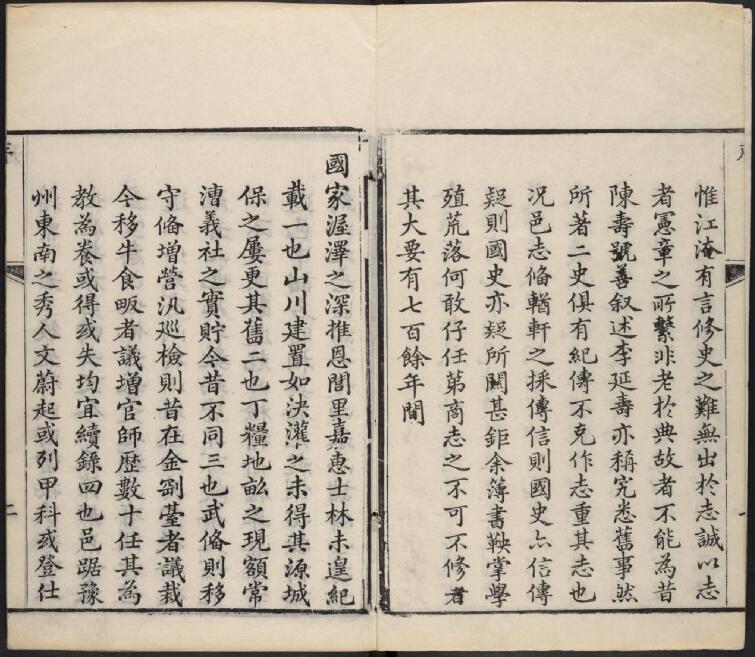 惟江淹有言修史之難無出於志誠以志
者憲章之所繫非老於典故者不能為昔
陳壽號善叙述李延壽亦稱究悉舊事然
所著二史俱有紀傳不克作志重其志也
况邑志偹輶軒之採傳信則國史亦信傳
疑則國史亦疑所關甚鉅余簿書鞅掌學
殖荒落何敢仔任第商志之不可不修者
其大要有七百餘年間
國家渥澤之深推恩閭里嘉惠士林未遑紀
載一也山川建置如決灌之未得其源城
保之屢更其舊二也丁糧地畝之現額常
漕義社之實貯今昔不同三也武偹則移
守偹增營汛巡檢則昔在金剛臺者議裁
今移牛食畈者議增官師歷數十任其為
教為養或得或失均宜續錄四也邑踞豫
州東南之秀人文蔚起或列甲科或登仕
二